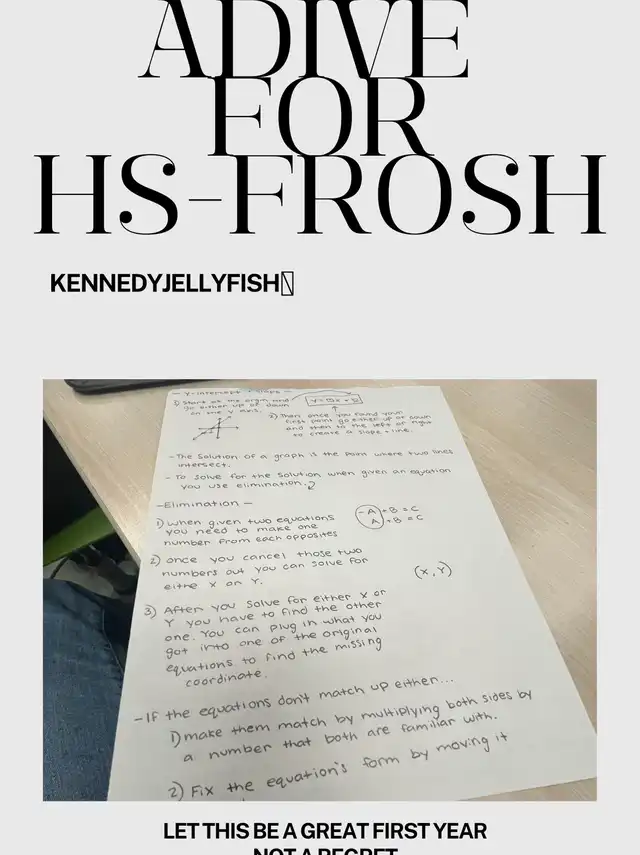 ADIVE
FOR
HS-FROSH
KENNEDYJELLYFISH
- Y-intercept + Slope -
1) Start at the origin and
go either up or down
on the y axis.
2) Then once you found your
first point go either up or down
and then to the left or right
to create a slope + line.
- The Solution of a graph is the point where two lines
intersect.
- To solve for the solution when given an equation
you use elimination.
- Elimination -
1) When given two equations
you need to make one
number from each opposites
-A + B = C
A + B = C
2) once you cancel those two
numbers out you can solve for
either X or Y.
(X, Y)
3) After you solve for either X or
Y you have to find the other
one. You can plug in what you
got into one of the original
equations to find the missing
coordinate.
- If the equations don't match up either...
1) make them match by multiplying both sides by
a number that both are familiar with.
2) Fix the equation's form by moving it
LET THIS BE A GREAT FIRST YEAR
NOT A REGRET